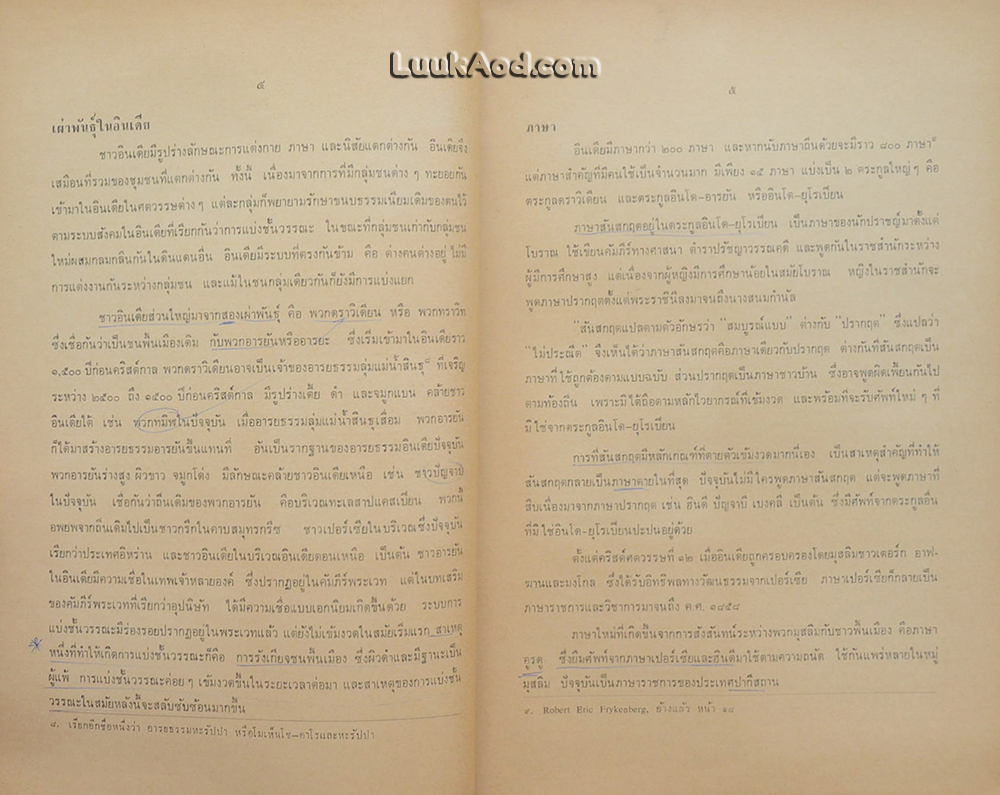 LuukAod.com
๔
เผ่าพันธุ์ในอินเดีย
ชาวอินเดียมีรูปร่างลักษณะการแต่งกาย ภาษา และนิสัยแตกต่างกัน อินเดียจึง
เสมือนที่รวมของชุมชนที่แตกต่างกัน ทั้งนี้ เนื่องมาจากการที่มีกลุ่มชนต่าง ๆ ทะยอยกัน
เข้ามาในอินเดียในศตวรรษต่างๆ แต่ละกลุ่มก็พยายามรักษาขนบธรรมเนียมเดิมของตนไว้
ตามระบบสังคมในอินเดียที่เรียกกันว่าการแบ่งชั้นวรรณะ ในขณะที่กลุ่มชนเก่ากับกลุ่มชน
ใหม่ผสมกลมกลืนกันในดินแดนอื่น อินเดียมีระบบที่ตรงกันข้าม คือ ต่างคนต่างอยู่ ไม่มี
การแต่งงานกันระหว่างกลุ่มชน และแม้ในชนกลุ่มเดียวกันก็ยังมีการแบ่งแยก
ชาวอินเดียส่วนใหญ่มาจากสองเผ่าพันธุ์ คือ พวกดราวิเดียน หรือ พวกทราวิท
ซึ่งเชื่อกันว่าเป็นชนพื้นเมืองเดิม กับพวกอารยันหรืออารยะ ซึ่งเริ่มเข้ามาในอินเดียราว
๑,๕๐๐ ปีก่อนคริสต์กาล พวกดราวิเดียนอาจเป็นเจ้าของอารยธรรมลุ่มแม่น้ำสินธุ๘ ที่เจริญ
ระหว่าง ๒๕๐๐ ถึง ๑๕๐๐ ปีก่อนคริสต์กาล มีรูปร่างเตี้ย ดำ และจมูกแบน คล้ายชาว
อินเดียใต้ เช่น พวกทมิฬในปัจจุบัน เมื่ออารยธรรมลุ่มแม่น้ำสินธุเสื่อม พวกอารยัน
ก็ได้มาสร้างอารยธรรมอารยันขึ้นแทนที่ อันเป็นรากฐานของอารยธรรมอินเดียปัจจุบัน
พวกอารยันร่างสูง ผิวขาว จมูกโด่ง มีลักษณะคล้ายชาวอินเดียเหนือ เช่น ชาวปัญจาป
ในปัจจุบัน เชื่อกันว่าถิ่นเดิมของพวกอารยัน คือบริเวณทะเลสาปแคสเปียน พวกนี้
อพยพจากถิ่นเดิมไปเป็นชาวกรีกในคาบสมุทรกรีซ ชาวเปอร์เซียในบริเวณซึ่งปัจจุบัน
เรียกว่าประเทศอิหร่าน และชาวอินเดียในบริเวณอินเดียตอนเหนือ เป็นต้น ชาวอารยัน
ในอินเดียมีความเชื่อในเทพเจ้าหลายองค์ ซึ่งปรากฏอยู่ในคัมภีร์พระเวท แต่ในบทเสริม
ของคัมภีร์พระเวทที่เรียกว่าอุปนิษัท ได้มีความเชื่อแบบเอกนิยมเกิดขึ้นด้วย ระบบการ
แบ่งชั้นวรรณะมีร่องรอยปรากฏอยู่ในพระเวทแล้ว แต่ยังไม่เข้มงวดในสมัยเริ่มแรก สาเหตุ
หนึ่งที่ทำให้เกิดการแบ่งชั้นวรรณะก็คือ การรังเกียจชนพื้นเมือง ซึ่งผิวดำและมีฐานะเป็น
ผู้แพ้ การแบ่งชั้นวรรณะค่อยๆ เข้มงวดขึ้นในระยะเวลาต่อมา และสาเหตุของการแบ่งชั้น
วรรณะในสมัยหลังนี้จะสลับซับซ้อนมากขึ้น
๘. เรียกอีกชื่อหนึ่งว่า อารยธรรมหะรัปปา หรือโมเห็นโช-ดาโรและหะรัปปา
๕
ภาษา
อินเดียมีภาษากว่า ๒๐๐ ภาษา และหากนับภาษาถิ่นด้วยจะมีราว ๘๐๐ ภาษา๙
แต่ภาษาสำคัญที่มีคนใช้เป็นจำนวนมาก มีเพียง ๑๕ ภาษา แบ่งเป็น ๒ ตระกูลใหญ่ๆ คือ
ตระกูลดราวิเดียน และตระกูลอินโด-อารยัน หรืออินโด-ยุโรเปียน
ภาษาสันสกฤตอยู่ในตระกูลอินโด-ยุโรเปียน เป็นภาษาของนักปราชญ์มาตั้งแต่
โบราณ ใช้เขียนคัมภีร์ทางศาสนา ตำราปรัชญาวรรณคดี และพูดกันในราชสำนักระหว่าง
ผู้มีการศึกษาสูง แต่เนื่องจากผู้หญิงมีการศึกษาน้อยในสมัยโบราณ หญิงในราชสำนักจะ
พูดภาษาปรากฤตตั้งแต่พระราชินีลงมาจนถึงนางสนมกำนัล
“สันสกฤตแปลตามตัวอักษรว่า “สมบูรณ์แบบ” ต่างกับ “ปรากฤต” ซึ่งแปลว่า
“ไม่ประณีต” จึงเห็นได้ว่าภาษาสันสกฤตคือภาษาเดียวกับปรากฤต ต่างกันที่สันสกฤตเป็น
ภาษาที่ใช้ถูกต้องตามแบบฉบับ ส่วนปรากฤตเป็นภาษาชาวบ้าน ซึ่งอาจพูดผิดเพี้ยนกันไป
ตามท้องถิ่น เพราะมิได้ถือตามหลักไวยากรณ์ที่เข้มงวด และพร้อมที่จะรับศัพท์ใหม่ ๆ ที่
มิใช่จากตระกูลอินโด-ยุโรเปียน
การที่สันสกฤตมีหลักเกณฑ์ที่ตายตัวเข้มงวดมากนี่เอง เป็นสาเหตุสำคัญที่ทำให้
สันสกฤตกลายเป็นภาษาตายในที่สุด ปัจจุบันไม่มีใครพูดภาษาสันสกฤต แต่จะพูดภาษาที่
สืบเนื่องมาจากภาษาปรากฤต เช่น ฮินดี ปัญจาบี เบงคลี เป็นต้น ซึ่งมีศัพท์จากตระกูลอื่น
ที่มิใช่อินโด-ยุโรเปียนปะปนอยู่ด้วย
ตั้งแต่คริสต์ศตวรรษที่ ๑๒ เมื่ออินเดียถูกครอบครองโดยมุสลิมชาวเตอร์ก อาฟ-
ฆานและมงโกล ซึ่งได้รับอิทธิพลทางวัฒนธรรมจากเปอร์เซีย ภาษาเปอร์เซียก็กลายเป็น
ภาษาราชการและวิชาการมาจนถึง ค.ศ. ๑๘๕๘
ภาษาใหม่ที่เกิดขึ้นจากการสังสันทน์ระหว่างพวกมุสลิมกับชาวพื้นเมือง คือภาษา
อูรดู ซึ่งยืมศัพท์จากภาษาเปอร์เซียและฮินดีมาใช้ตามความถนัด ใช้กันแพร่หลายในหมู่
มุสลิม ปัจจุบันเป็นภาษาราชการของประเทศปากีสถาน
๙. Robert Eric Frykenberg, อ้างแล้ว หน้า ๑๘